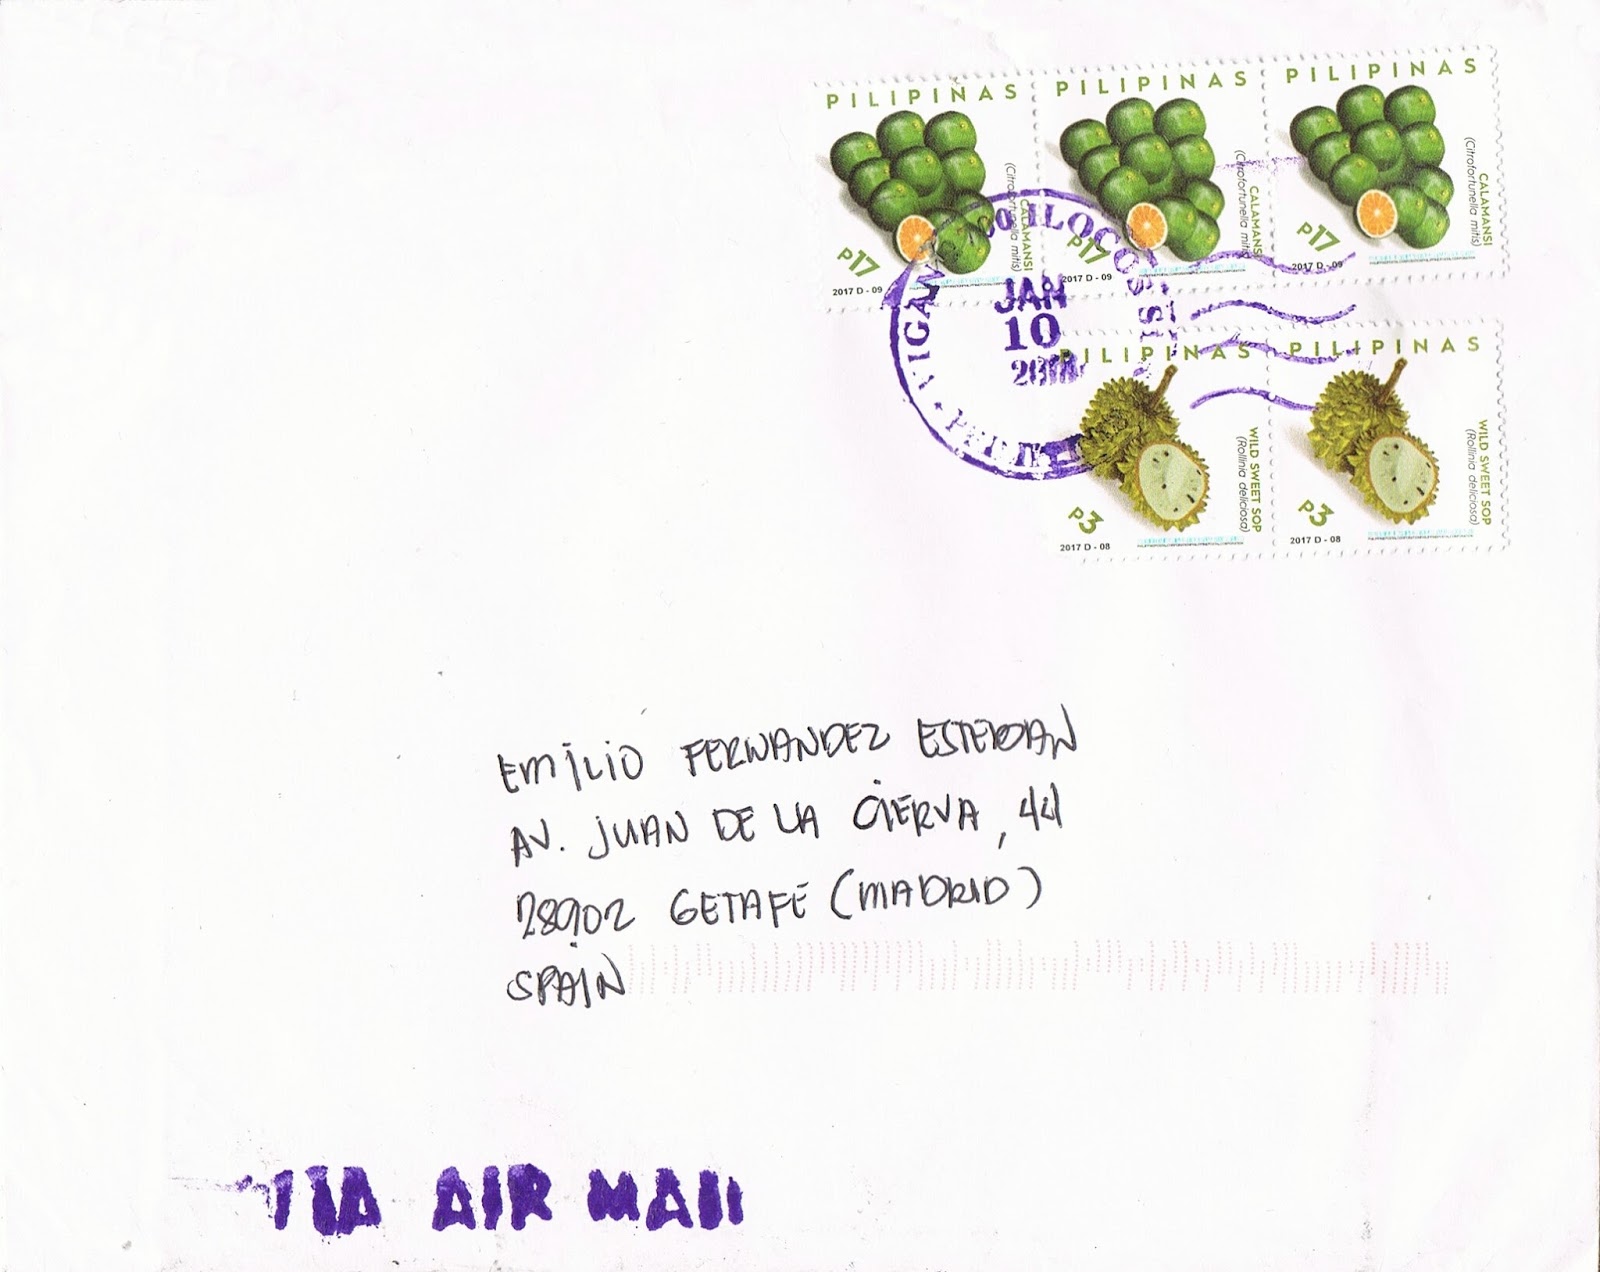 PILIPINAS PILIPINAS PILIPINAS
CALAMANSI
(Citrofortunella mitis)
CALAMANSI
(Citrofortunella mitis)
CALAMANSI
(Citrofortunella mitis)
P17 P17 P17
2017 D - 09 2017 D - 09 2017 D - 09
VIGAN ILOCOS
JAN
10
PILIPINAS PILIPINAS
WILD SWEET SOP
(Rollinia deliciosa)
WILD SWEET SOP
(Rollinia deliciosa)
P3 P3
2017 D - 08 2017 D - 08
EMILIO FERNANDEZ ESTEBAN
AV. JUAN DE LA CIERVA, 44
28902 GETAFE (MADRID)
SPAIN
VIA AIR MAIL